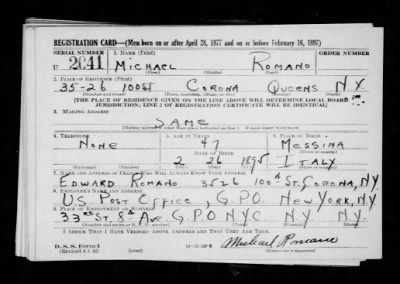 REGISTRATION CARD—(Men born on or after April 28, 1877 and on or before February 16, 1897)
SERIAL NUMBER 1. NAME (Print) ORDER NUMBER
U 2041 MICHAEL ROMANO
(First) (Middle) (Last)
2. PLACE OF RESIDENCE (Print)
35-26 100 ST CORONA QUEENS N.Y.
(Number and street) (Town, township, village, or city) (County) (State)
[THE PLACE OF RESIDENCE GIVEN ON THE LINE ABOVE WILL DETERMINE LOCAL BOARD
JURISDICTION; LINE 2 OF REGISTRATION CERTIFICATE WILL BE IDENTICAL]
3. MAILING ADDRESS
SAME
[Mailing address if other than place indicated on line 2. If same insert word same]
4. TELEPHONE 5. AGE IN YEARS 6. PLACE OF BIRTH
NONE 47 MESSINA
DATE OF BIRTH (Town or county)
2 26 1895 ITALY
(Exchange) (Number) (Mo.) (Day) (Yr.) (State or country)
7. NAME AND ADDRESS OF PERSON WHO WILL ALWAYS KNOW YOUR ADDRESS
EDWARD ROMANO 3526 100th ST. CORONA, N.Y.
8. EMPLOYER'S NAME AND ADDRESS
US POST OFFICE, G.P.O. NEW YORK, N.Y.
9. PLACE OF EMPLOYMENT OR BUSINESS
33RD ST. 8th AVE. G.P.O NYC N.Y. N.Y.
(Number and street or R. F. D. number) (Town) (County) (State)
I AFFIRM THAT I HAVE VERIFIED ABOVE ANSWERS AND THAT THEY ARE TRUE.
D. S. S. Form 1
(Revised 4-1-42) (over) Michael Romano